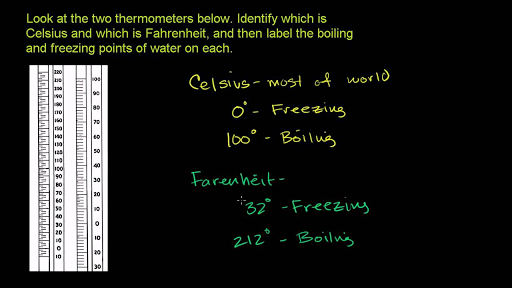 Look at the two thermometers below. Identify which is
Celsius and which is Fahrenheit, and then label the boiling
and freezing points of water on each.
220
210
200
190
180
170
160
150
140
130
120
110
100
90
80
70
60
50
40
30
20
10
0
10
100
90
80
70
60
50
40
30
20
10
0
10
20
30
Celsius - most of world
0° - Freezing
100° - Boiling
Farenheit -
32° - Freezing
212° - Boiling